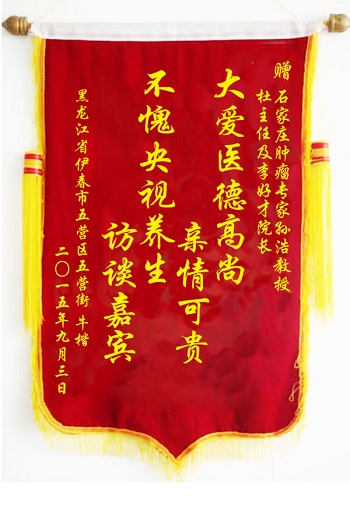 赠 石家庄肿瘤专家孙浩教授
杜主任及李好才院长
大爱医德高尚
亲情可贵
不愧央视养生
访谈嘉宾
黑龙江省伊春市五营区五营街 牛楷
二〇一五年九月三日